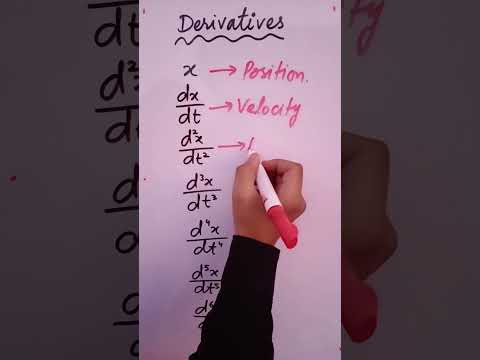 Derivatives
x → Position.
dx/dt → Velocity
d²x/dt² →
d³x/dt³
d⁴x/dt⁴
d⁵x/dt⁵